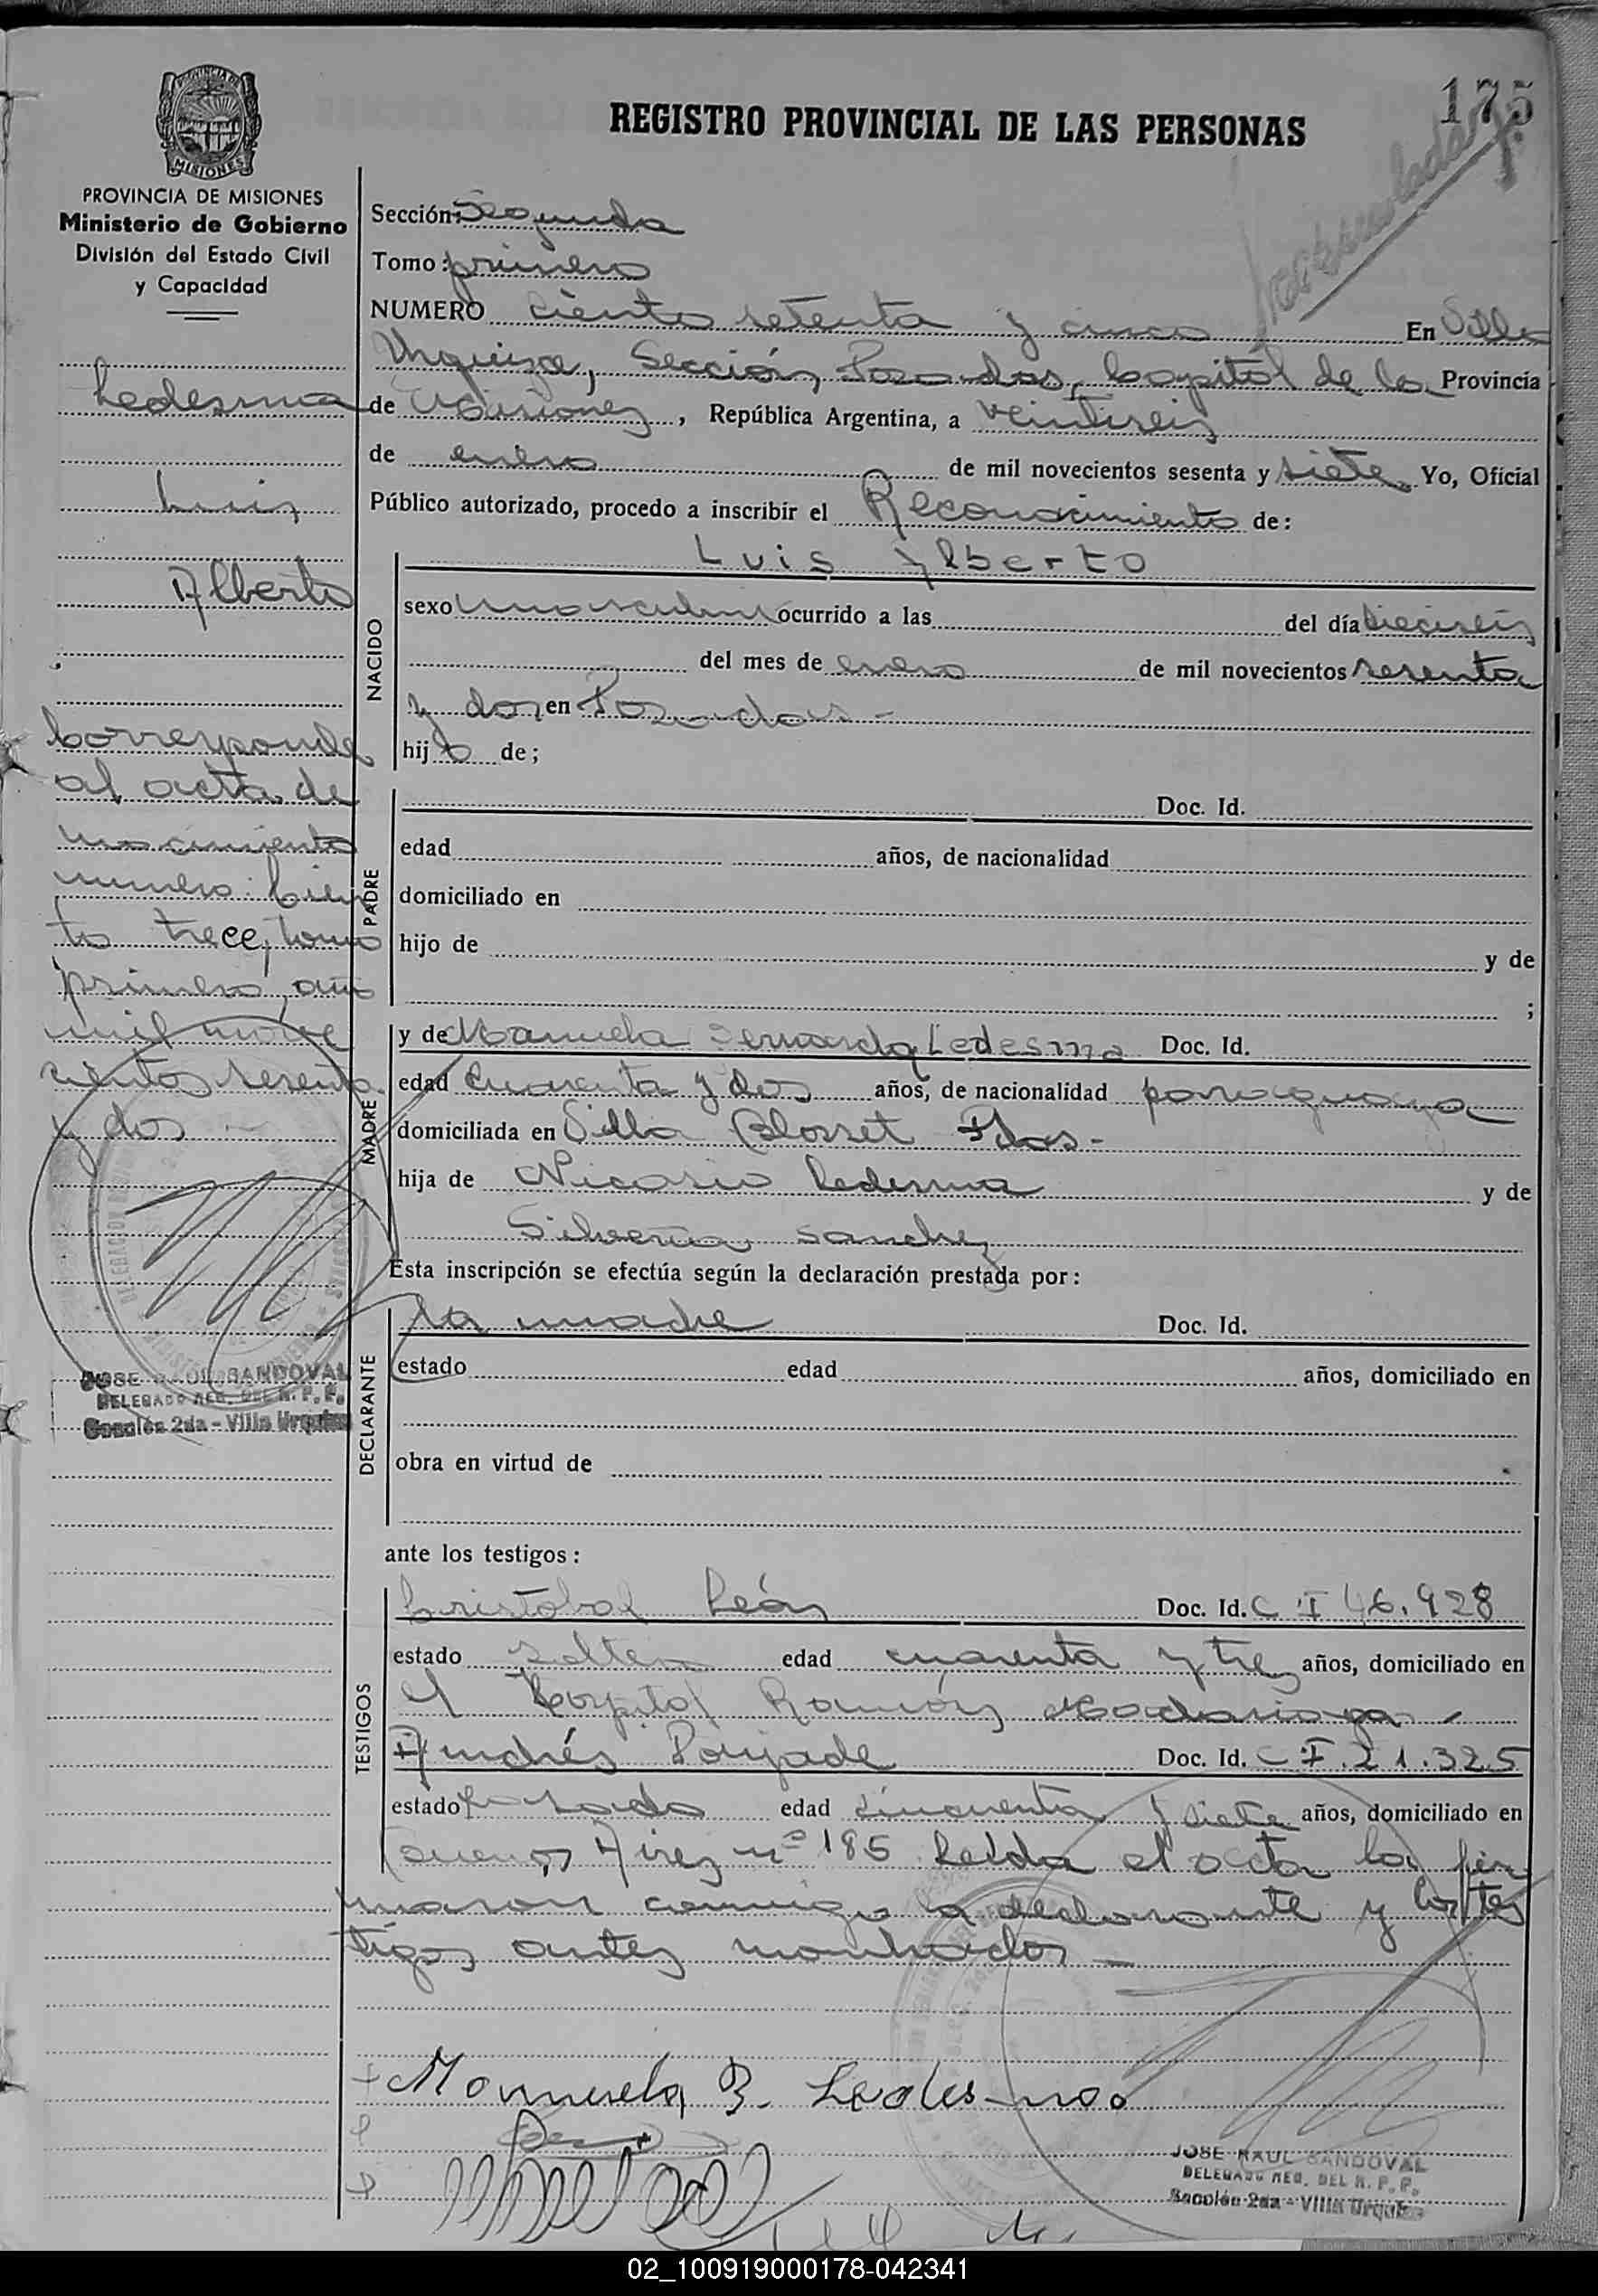 175
REGISTRO PROVINCIAL DE LAS PERSONAS
PROVINCIA DE MISIONES
MISIONES
PROVINCIA DE MISIONES
Ministerio de Gobierno
División del Estado Civil
y Capacidad
Ledesma
Luis
Alberto
Corresponde
al acta de
nacimiento
numero: Cien
to trece, tomo
primero, año
mil nove
cientos sesenta
y dos -
JOSE RAUL SANDOVAL
DELEGADO REG. DEL R. P. P.
Sección 2da - Villa Urquiza
Sección: Segunda
Tomo: primero
NUMERO ciento setenta y cinco En Villa
Urquiza, Sección Posadas, Capital de la Provincia
de Misiones, República Argentina, a veintiseis
de enero de mil novecientos sesenta y siete Yo, Oficial
Público autorizado, procedo a inscribir el Reconocimiento de:
NACIDO
Luis Alberto
sexo masculino ocurrido a las del día dieciseis
del mes de enero de mil novecientos sesenta
y dos, en Posadas -
hijo de;
PADRE
Doc. Id.
edad años, de nacionalidad
domiciliado en
hijo de y de
;
MADRE
y de Manuela Ledesma Doc. Id.
edad cuarenta y dos años, de nacionalidad paraguaya
domiciliada en Villa Blosset Pdas-
hija de Nicasio Ledesma y de
Silveria Sanchez
Esta inscripción se efectúa según la declaración prestada por:
DECLARANTE
la madre Doc. Id.
estado edad años, domiciliado en
obra en virtud de
ante los testigos:
TESTIGOS
Cristobal León Doc. Id. C I 46.928
estado soltero edad cuarenta y tres años, domiciliado en
el Hospital Ramón Madariaga -
Andrés Poujade Doc. Id. C I. 21.325
estado casado edad cincuenta y siete años, domiciliado en
Buenos Aires nº 185 Leida el acta la fir
maron conmigo la declarante y los tes
tigos antes nombrados -
Manuela B. Ledesma
JOSE RAUL SANDOVAL
DELEGADO REG. DEL R. P. P.
Sección 2da - Villa Urquiza
02_100919000178-042341